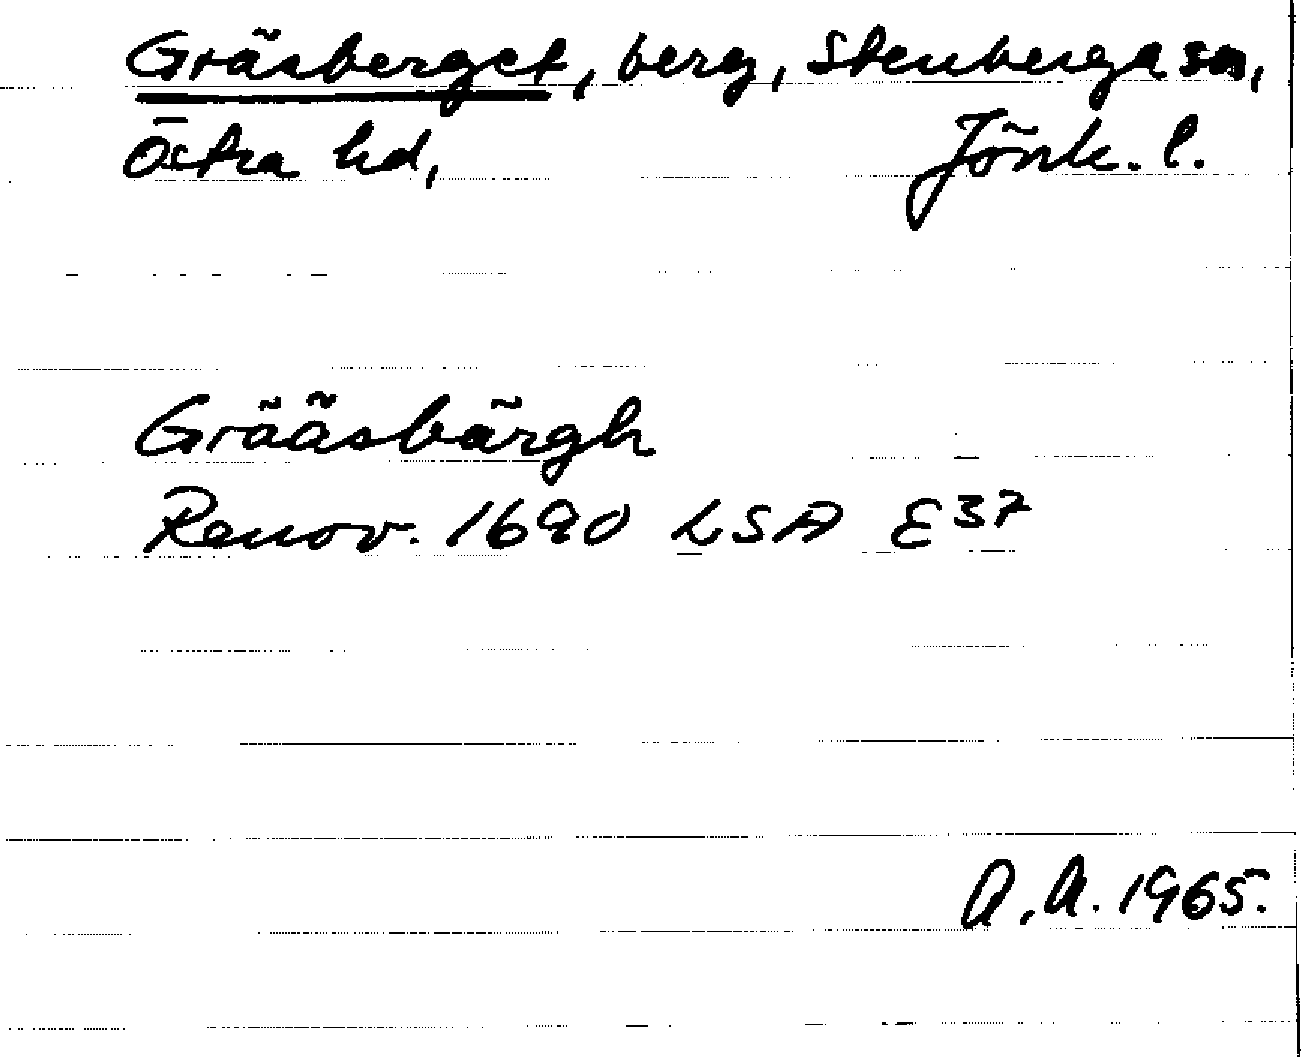 Gräsberget, berg, Stenberga sn,
Östra hd, Jönk. l.
Grääsbärgh
Renov. 1690 LSA E37
A.A. 1965.